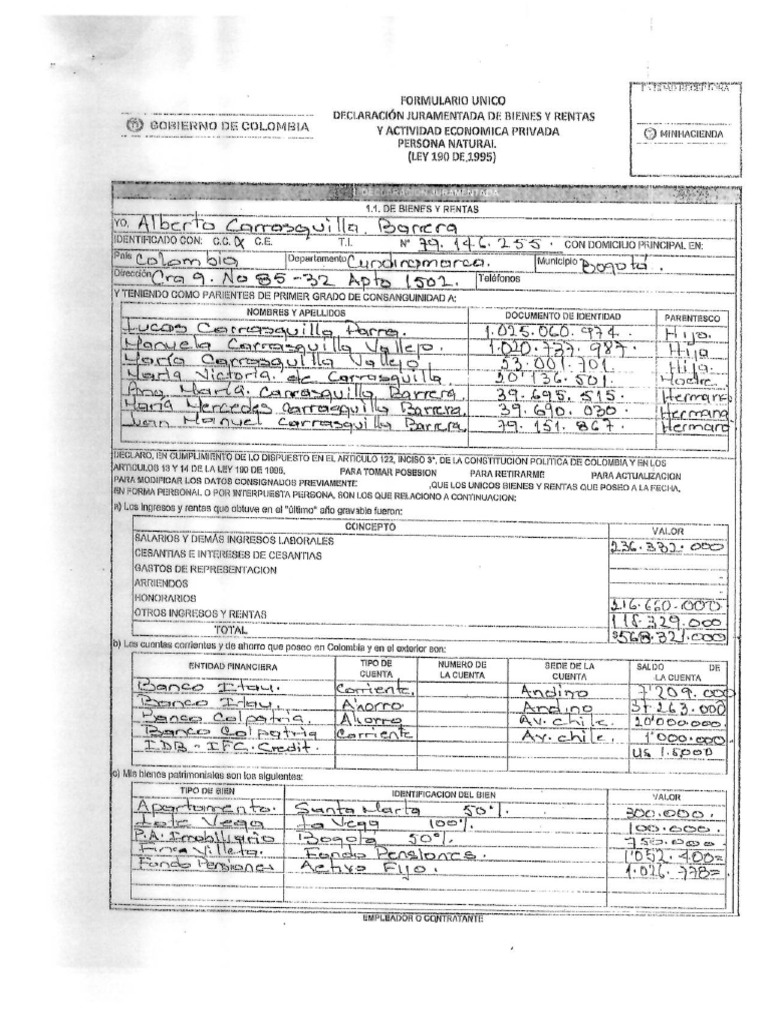 FORMULARIO UNICO
DECLARACIÓN JURAMENTADA DE BIENES Y RENTAS
Y ACTIVIDAD ECONOMICA PRIVADA
PERSONA NATURAL
(LEY 190 DE 1995)
GOBIERNO DE COLOMBIA
ENTIDAD RECEPTORA
MINHACIENDA
1. DECLARACION JURAMENTADA
1.1. DE BIENES Y RENTAS
YO, Alberto Carrasquilla Barrera
IDENTIFICADO CON: C.C. X C.E. T.I. N° 79.146.255. CON DOMICILIO PRINCIPAL EN:
País Colombia Departamento Cundinamarca. Municipio Bogotá.
Dirección Cra 9. No 85-32 Apto 1502. Teléfonos
Y TENIENDO COMO PARIENTES DE PRIMER GRADO DE CONSANGUINIDAD A:
NOMBRES Y APELLIDOS DOCUMENTO DE IDENTIDAD PARENTESCO
Lucas Carrasquilla Parra. 1.025.060.974. Hijo.
Manuela Carrasquilla Vallejo. 1.020.737.987. Hija
María Carrasquilla Vallejo. 53.001.701. Hija.
María Victoria de Carrasquilla. 20.136.501. Madre.
Ana María Carrasquilla Barrera. 39.695.515. Hermana
María Mercedes Carrasquilla Barrera. 39.690.030. Hermana
Juan Manuel Carrasquilla Barrera. 79.151.867. Hermano
DECLARO, EN CUMPLIMIENTO DE LO DISPUESTO EN EL ARTICULO 122, INCISO 3°, DE LA CONSTITUCION POLITICA DE COLOMBIA Y EN LOS
ARTICULOS 13 Y 14 DE LA LEY 190 DE 1995, PARA TOMAR POSESION PARA RETIRARME PARA ACTUALIZACION
PARA MODIFICAR LOS DATOS CONSIGNADOS PREVIAMENTE ,QUE LOS UNICOS BIENES Y RENTAS QUE POSEO A LA FECHA,
EN FORMA PERSONAL O POR INTERPUESTA PERSONA, SON LOS QUE RELACIONO A CONTINUACION:
a) Los ingresos y rentas que obtuve en el "último" año gravable fueron:
CONCEPTO VALOR
SALARIOS Y DEMÁS INGRESOS LABORALES 236.332.000
CESANTIAS E INTERESES DE CESANTIAS
GASTOS DE REPRESENTACION
ARRIENDOS
HONORARIOS 216.660.000
OTROS INGRESOS Y RENTAS 118.329.000
TOTAL $568.321.000
b) Las cuentas corrientes y de ahorro que poseo en Colombia y en el exterior son:
ENTIDAD FINANCIERA TIPO DE CUENTA NUMERO DE LA CUENTA SEDE DE LA CUENTA SALDO DE LA CUENTA
Banco Itau. Corriente. Andino 7'209.000
Banco Itau. Ahorro Andino 37'263.000
Banco Colpatria. Ahorro Av. chile. 20'000.000.
Banco Colpatria Corriente Av. chile. 1'000.000
IDB - IFC. Credit. US
c) Mis bienes patrimoniales son los siguientes:
TIPO DE BIEN IDENTIFICACION DEL BIEN VALOR
Apartamento. Santa Marta 50% 300.000.
Lote Vega La Vega 100% 100.000.
P.A. Imobiliario Bogota 50% 750.000
Finca Villeta. Fondo Pensiones. 1'052.400=
Fondo Pensiones Activo Fijo. 1.026.778=
EMPLEADOR O CONTRATANTE